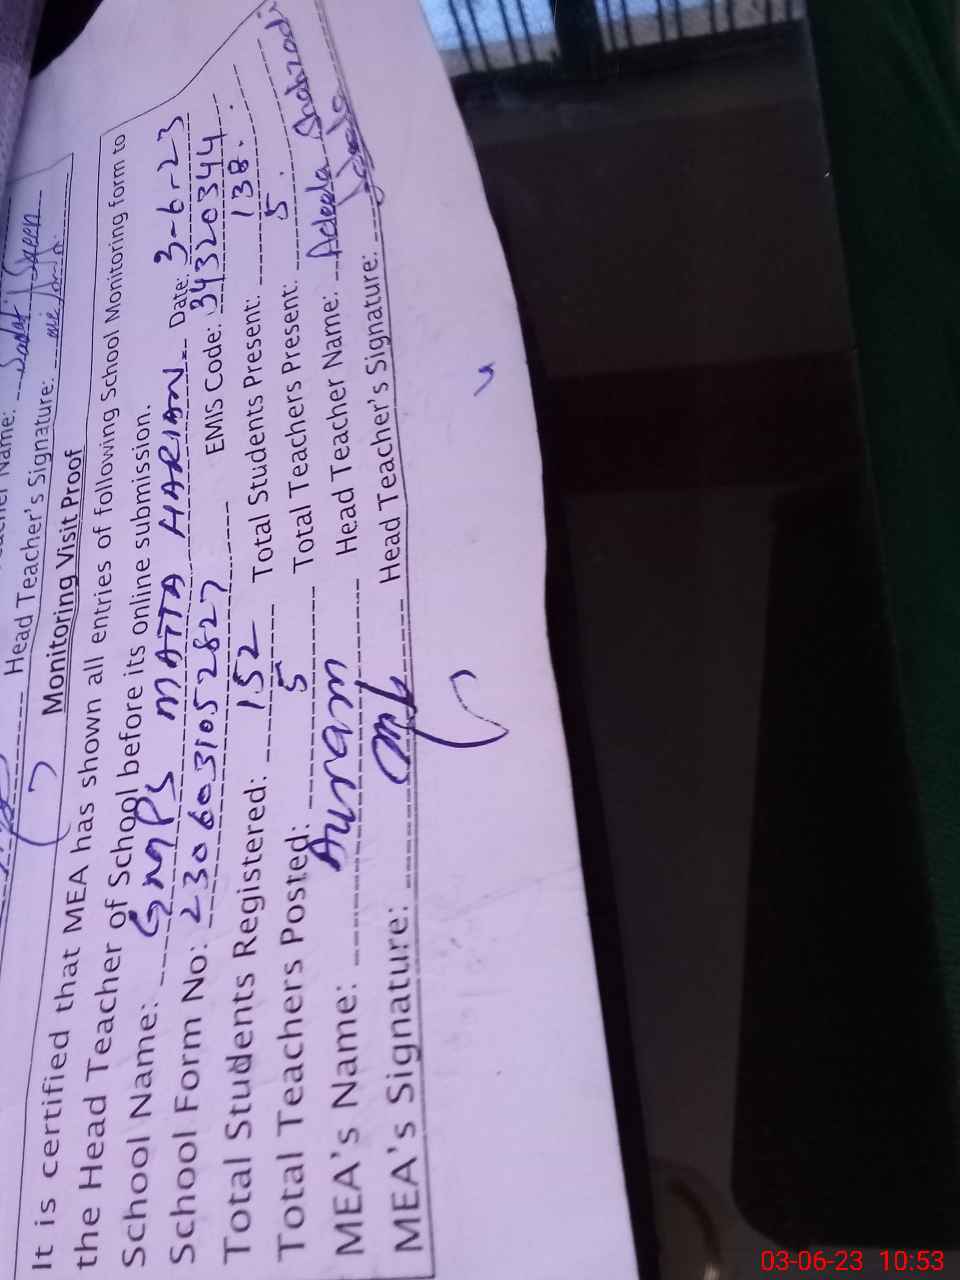 Name: Sadaf
Head Teacher's Signature:
Monitoring Visit Proof
It is certified that MEA has shown all entries of following School Monitoring form to
the Head Teacher of School before its online submission.
School Name: GMPS MATTA HARIAN Date: 3-6-23
School Form No: 2306031052827 EMIS Code: 34320344
Total Students Registered: 152 Total Students Present: 138.
Total Teachers Posted: 5 Total Teachers Present: 5.
MEA's Name: Auram Head Teacher Name: Adeela Shahzadi
MEA's Signature: Head Teacher's Signature: Adeela
03-06-23 10:53